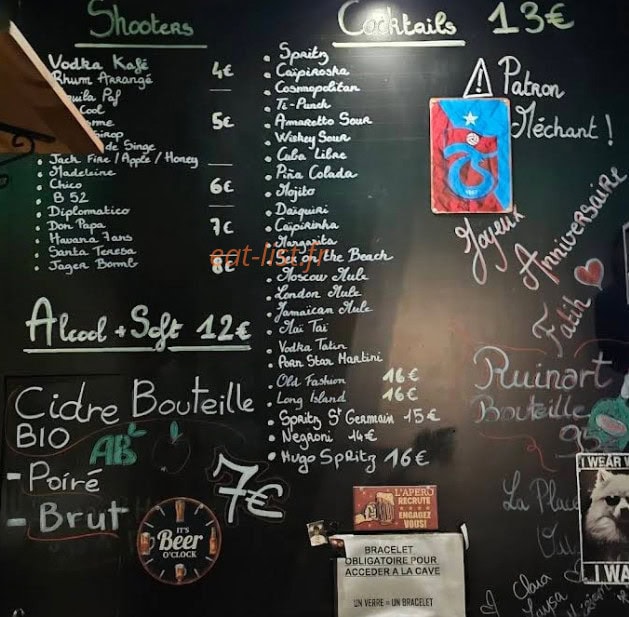 Shooters
Vodka Kafé 4€
Rhum Arrangé
quila Paf
ool
me 5€
inop
de Singe
Jack Fire / Apple / Honey
Madeleine
Chico 6€
B 52
Diplomatico
Don Papa 7€
Havana 7ans
Santa Teresa
Jäger Bomb 8€
Alcool + Soft 12€
Cidre Bouteille
BIO
AB
- Poiré
- Brut
7€
IT'S
Beer
O'CLOCK
Cocktails 13€
Spritz
Caïpiroska
Cosmopolitan
Ti-Punch
Amaretto Sour
Wiskey Sour
Cuba Libre
Piña Colada
Mojito
Daïquiri
Caïpirinha
Margarita
Sex on the Beach
Moscow Mule
London Mule
Jamaican Mule
Maï Taï
Vodka Tatin
Porn Star Martini
Old Fashion 16€
Long Island 16€
Spritz St Germain 15€
Negroni 14€
Hugo Spritz 16€
eat-list.fr
L'APERO
RECRUTE
ENGAGEZ
VOUS!
BRACELET
OBLIGATOIRE POUR
ACCEDER A LA CAVE
UN VERRE = UN BRACELET
! Patron
Méchant !
Joyeux
Anniversaire
Fatih
Ruinart
Bouteille
95
La Place
I WEAR
I WA
Clara